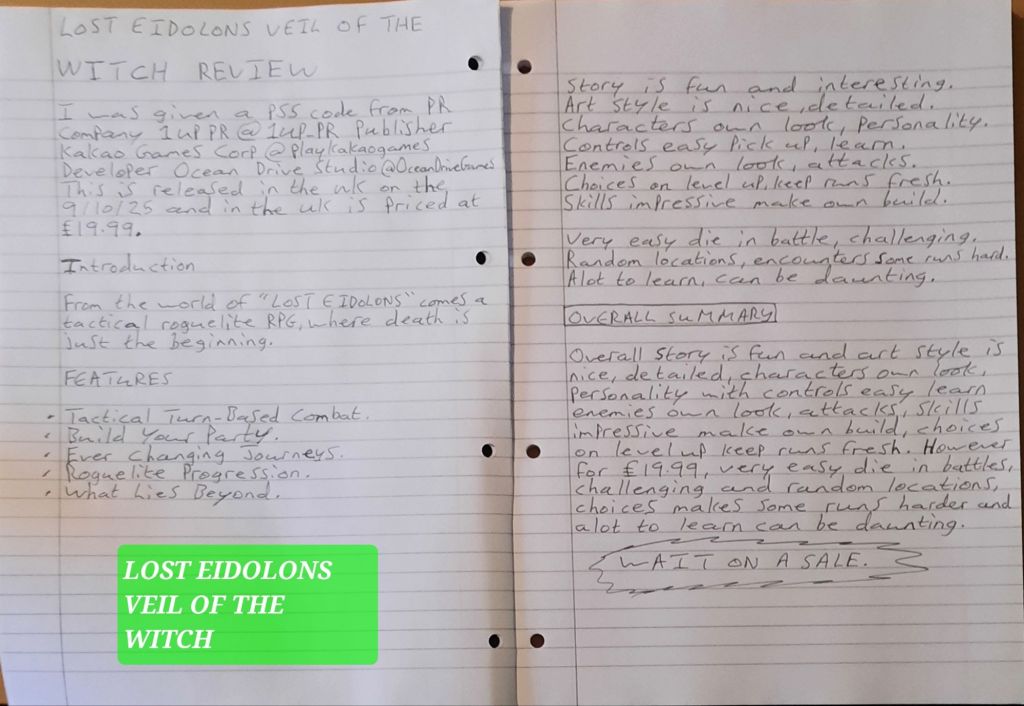 LOST EIDOLONS VEIL OF THE
WITCH REVIEW
I was given a PS5 code from PR
Company 1UP PR @ 1UP_PR Publisher
Kakao Games Corp @playkakaogames
Developer Ocean Drive Studio @OceanDriveGames
This is released in the uk on the
9/10/25 and in the uk is priced at
£19.99.
Introduction
From the world of "LOST EIDOLONS" comes a
tactical roguelite RPG, where death is
just the beginning.
FEATURES
• Tactical Turn-Based Combat.
• Build Your Party.
• Ever Changing Journeys.
• Roguelite Progression.
• What Lies Beyond.
LOST EIDOLONS
VEIL OF THE
WITCH
Story is fun and interesting.
Art style is nice, detailed.
Characters own look, Personality.
Controls easy Pick up, learn.
Enemies own look, attacks.
Choices on level up, keep runs fresh.
Skills impressive make own build.
Very easy die in battle, challenging.
Random locations, encounters some runs hard.
Alot to learn, can be daunting.
OVERALL SUMMARY
Overall Story is fun and art style is
nice, detailed, characters own look,
Personality with controls easy learn
enemies own look, attacks, skills
impressive make own build, choices
on level up keep runs fresh. However
for £19.99, very easy die in battles,
challenging and random locations,
choices makes some runs harder and
alot to learn can be daunting.
WAIT ON A SALE.